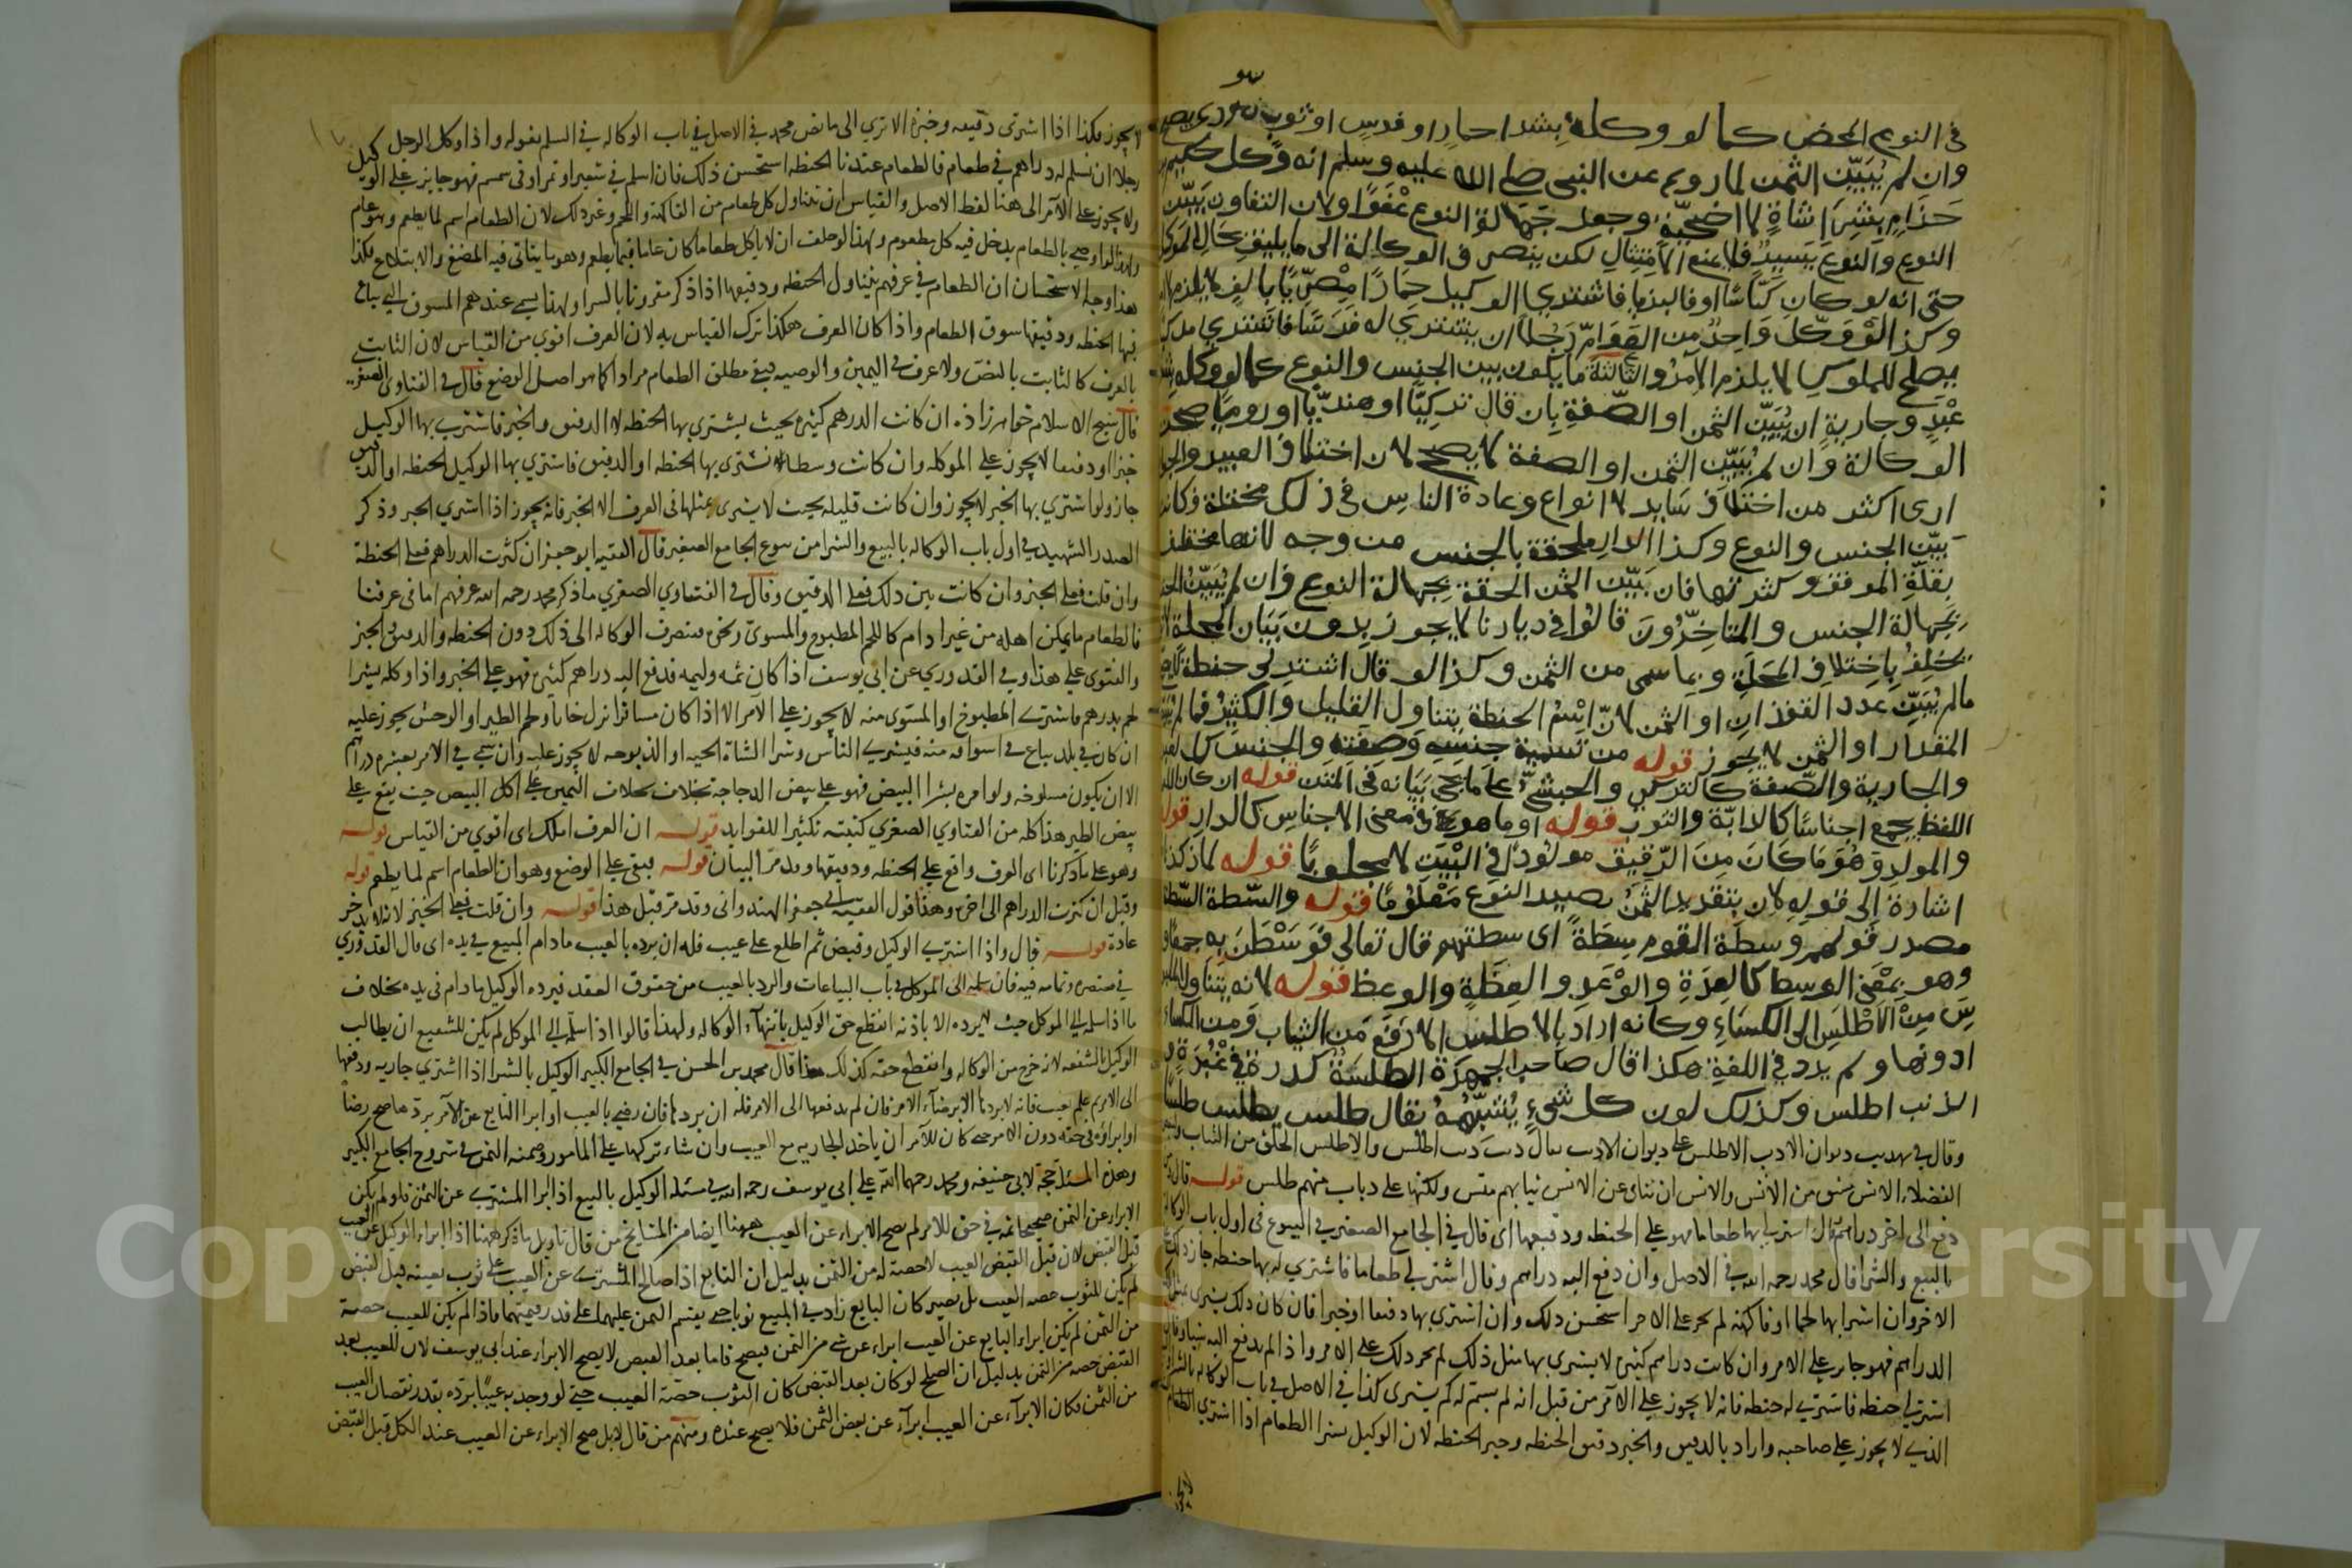 في النوع المحض كما لو وكله بشراء حمار او فرس او ثوب هروي يصح
وان لم يُبَيّن الثمن لما روي عن النبي صلى الله عليه وسلم انه وكّل حكيم بن
حزام بشراء شاة لاضحية وجعل جهالة النوع عفوًا ولان التفاوت بيّن
النوع والنوع يسير فلا يمنع الامتثال لكن ينصرف الوكالة الى ما يليق بحال الموكل
حتى انه لو كان كنّاسًا او فاليزيا فاشتري الوكيل حمارًا مصريًا باليق لا يلزم
وكذا لو وكّل واحد من العوام رجلًا ان يشتري له فرسًا فاشتري
يصلح للملوك لا يلزم الآمر والثالثة ما يكون بين الجنس والنوع كما لو وكله بشراء
عبد وجارية ان يُبَيّن الثمن او الصفة بان قال تركيًا او هنديًا او روميًا صح
الوكالة وان لم يُبَيّن الثمن او الصفة لا يصح لان اختلاف العبيد والجوا
ارى اكثر من اختلاف ساير الانواع وعادة الناس في ذلك مختلفة فكان
بين الجنس والنوع وكذا الدار ملحقة بالجنس من وجه لانها مختلف
بقلة المرفق وكثرتها فان بيّن الثمن الحقة بجهالة النوع وان لم يُبَيّن الحق
بجهالة الجنس والمتاخرون قالوا في ديارنا لا يجوز بدون بيان المحلة لان
يختلف باختلاف المحلة وبما سمى من الثمن وكذا لو قال اشتر لي حنطة لا يصح
ما لم يُبيّن عدد القفزان او الثمن لان اسم الحنطة يتناول القليل والكثير فما لم يبين
المقدار او الثمن لا يجوز قوله من تسمية جنسه وصفته والجنس كالعبد
والجارية والصفة كالتركي والحبشي على ما يجي بيانه في المتن قوله ان كان اللف
اللفظ يجمع اجناسًا كالدابة والثوب قوله او ما هو في معنى الاجناس كالدار قوله
والمولد وهو ما كان من الرقيق مولودًا في البيت لا مجلوبًا قوله لما ذكرنا
اشارة الى قوله لان بتقدير الثمن يصير النوع معلومًا قوله والسطة السطة
مصدر قولهم وسطة القوم سطةً اي سطتهم قال تعالى فوسطن به جمعًا
وهو بمعنى الوسط كالعدة والوعد والعظة والوعظ قوله لانه يتناول الملبو
س من الاطلس الى الكساء وكانه اراد بالاطلس الارفع من الثياب ومن الكساء
ادونها ولم يرد في اللغة هكذا قال صاحب الجمهرة الطلسة كدرة في غبرة و
الذئب اطلس وكذلك لون كل شيء يشبهه يقال طلس يطلس طلسًا
وقال في تهذيب ديوان الادب الاطلس على ديوان الادب يقال ذئب اطلس والاطلس الخلق من الثياب
دفع الى اخر دراهم وقال اشتر لي بها طعاما فهو على الحنطة ودقيقها اي قال في الجامع الصغير في البيوع في اول باب الوكالة
بالبيع والشرا قال محمد رحمه الله في الاصل وان دفع اليه دراهم وقال اشتر لي طعاما فاشترى له بها حنطة جاز ذلك على
الاخر وان اشترا بها لحما او فاكهة لم يجز على الامر استحسن ذلك وان اشترى بها دقيقا او خبزا فان كان ذلك يشرى بمثل
الدراهم فهو جايز على الامر وان كانت دراهم كثيرة لا يشترى بها مثل ذلك لم يجز ذلك على الامر واذا لم يدفع اليه شيئا وقال
اشتر لي حنطة فاشترى له حنطة فانه لا يجوز على الآمر من قبل انه لم يسم له كم يشترى كذا في الاصل في باب الوكالة بالشرا
الذي لا يجوز على صاحبه واراد بالدقيق والخبز دقيق الحنطة وخبز الحنطة لان الوكيل بشرا الطعام اذا اشترى الطعام
لا يجوز فكذا اذا اشترى دقيقه وخبزه الا ترى الى ما نص محمد في الاصل في باب الوكالة في السلم بقوله واذا وكل الرجل
رجلا ان يسلم له دراهم في طعام فالطعام عندنا الحنطة استحسن ذلك فان اسلم في شعير او تمر او في سمسم فهو جايز على الوكيل
ولا يجوز على الآمر الى هنا لفظ الاصل والقياس ان يتناول كل طعام من الفاكهة واللحم وغير ذلك لان الطعام اسم لما يطعم وهو عام
ولهذا لو اوصي بالطعام يدخل فيه كل مطعوم ولهذا لو حلف ان لا ياكل طعاما كان عاما فيما يطعم وهو ما يتاتى فيه المضغ والابتلاع فكذا
هذا وجه الاستحسان ان الطعام في عرفهم يتناول الحنطة ودقيقها اذا ذكر مقرونا بالشرا ولهذا يسمى عندهم السوق التي يباع
فيها الحنطة ودقيقها سوق الطعام واذا كان العرف هكذا ترك القياس به لان العرف اقوى من القياس لان الثابت
بالعرف كالثابت بالنص ولا عرف في اليمين والوصية فبقي مطلق الطعام مرادا كما هو اصل الوضع قال في الفتاوى الصغرى
قال شيخ الاسلام خواهر زاده ان كانت الدراهم كثيرة بحيث يشترى بها الحنطة لا الدقيق والخبز فاشترى بها الوكيل
خبزا او دقيقا لا يجوز على الموكل وان كانت وسطا يشترى بها الحنطة او الدقيق فاشترى بها الوكيل الحنطة او الدقيق
جاز ولو اشترى بها الخبز لا يجوز وان كانت قليلة بحيث لا يشترى بمثلها في العرف الا الخبز فانه يجوز اذا اشترى الخبز وذكر
الصدر الشهيد في اول باب الوكالة بالبيع والشرا من بيوع الجامع الصغير قال الفقيه ابو جعفر ان كثرت الدراهم فعلى الحنطة
وان قلت فعلى الخبز وان كانت بين ذلك فعلى الدقيق وقال في الفتاوي الصغري ما ذكر محمد رحمه الله عرفهم اما في عرفنا
فالطعام ما يمكن اكله من غير ادام كاللحم المطبوخ والمشوي ونحوه فتنصرف الوكالة الى ذلك دون الحنطة والدقيق والخبز
والفتوى على هذا وفي القدوري عن ابي يوسف اذا كان ثمه وليمه فدفع اليه دراهم كثيرة فهو على الخبز واذا وكله بشرا
لحم بدرهم فاشترى المطبوخ او المشوى منه لا يجوز على الآمر الا اذا كان مسافرا نزل خانا ولحم الطير او الوحش يجوز عليه
ان كان في بلد يباع في اسواقه منه فيشتري الناس وشرا الشاة الحية او المذبوحة لا يجوز عليه وان سمي في الامر بعشرة دراهم
الا ان يكون مسلوخة ولو امره بشرا البيض فهو على بيض الدجاجة بخلاف اليمين على اكل البيض حيث يقع على
بيض الطير هذا كله من الفتاوي الصغري كتبته تكثيرا للفوايد قوله ان العرف املك اى اقوي من القياس قوله
وهو على ما ذكرنا اى العرف واقع على الحنطة ودقيقها وقد مر البيان قوله فبقي على الوضع وهو ان الطعام اسم لما يطعم قوله
وقيل ان كثرت الدراهم الى اخره وهذا قول الفقيه ابي جعفر الهندواني وقد مر قبل هذا قوله وان قلت فعلى الخبز لانه لا يدخر
عادة قوله قال واذا اشترى الوكيل وقبض ثم اطلع على عيب فله ان يرده بالعيب ما دام المبيع في يده اى قال القدوري
في مختصره وتمامه فيه فان سلمه الى الموكل في باب البياعات والرد بالعيب من حقوق العقد فيرده الوكيل ما دام في يده بخلاف
ما اذا سلمه الى الموكل حيث لا يرده الا باذنه انقطع حق الوكيل بانتهاء الوكالة ولهذا قالوا اذا سلمه الى الموكل لم يكن للشفيع ان يطالب
الوكيل بالشفعة لانه خرج من الوكالة وانقطع حقه كذلك هذا قال محمد بن الحسن في الجامع الكبير الوكيل بالشرا اذا اشترى جارية ودفعها
الى الامر ثم علم بعيب فانه لا يردها الا برضاء الامر فان لم يدفعها الى الامر فله ان يردها فان رضي بالعيب او ابرا البايع عن الامر برده صح رضاه
او ابراؤه في حقه دون الامر حتى كان للآمر ان ياخذ الجارية مع العيب وان شاء تركها على المامور وضمنه الثمن في شروح الجامع الكبير
وهذه المسئلة حجة لابي حنيفة ومحمد رحمهما الله على ابي يوسف رحمه الله في مسئلة الوكيل بالبيع اذا ابرا المشترى عن الثمن فلو لم يكن
الابراء عن الثمن صحيحا ثمه في حق الامر لم يصح الابراء عن العيب ههنا ايضا فمن المشايخ من قال تاويل ما ذكر ههنا اذا ابراء الوكيل عن العيب
قبل القبض لان قبل القبض العيب لا حصة له من الثمن بدليل ان البايع اذا صالح المشترى عن العيب على ثوب بعينه قبل القبض
لم يكن للثوب حصة العيب بل يصير كان البايع زاد في المبيع ثوبا حتى يقسم الثمن عليهما على قدر قيمتهما فاذا لم يكن للعيب حصة
من الثمن لم يكن ابراء البايع عن العيب ابراء عن شي من الثمن فيصح فاما بعد القبض لا يصح الابراء عند ابي يوسف لان للعيب بعد
القبض حصة من الثمن بدليل ان الصلح لو كان بعد القبض كان الثوب حصة العيب حتى لو وجد به عيبًا يرده بقدر نقصان العيب
من الثمن فكان الابراء عن العيب ابراء عن بعض الثمن فلا يصح عنده ومنهم من قال لا بل صح الابراء عن العيب عند الكل قبل القبض